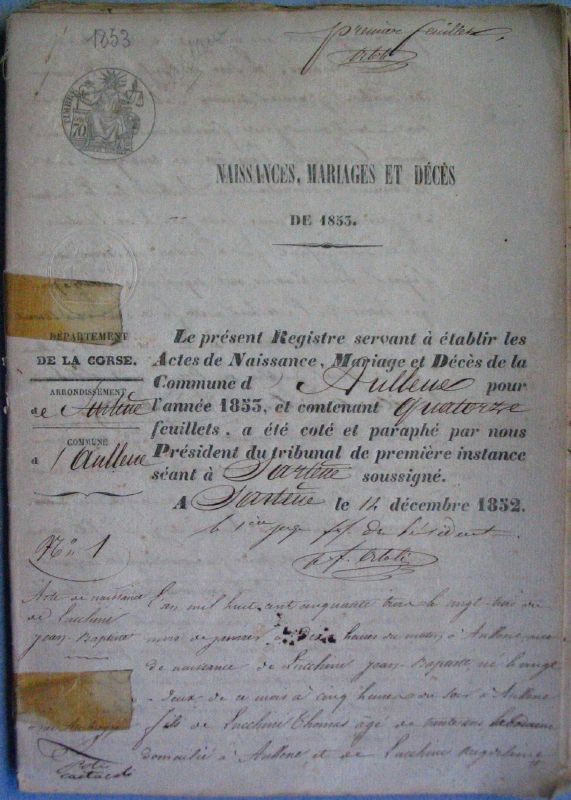 1853
première feuillet
Ortoli
TIMBRE
70
NAISSANCES, MARIAGES ET DÉCÈS
DE 1853.
DÉPARTEMENT
DE LA CORSE.
ARRONDISSEMENT
de Sartène
COMMUNE
d'Aullene
Le présent Registre servant à établir les
Actes de Naissance, Mariage et Décès de la
Commune d Aullene pour
l'année 1853, et contenant quatorze
feuillets, a été coté et paraphé par nous
Président du tribunal de première instance
séant à Sartène soussigné.
A Sartène le 14 décembre 1852.
le 1er juge ff. de Président
Ortoli
No 1
Acte de naissance
de Lucchini
jean-Baptiste
L'an mil huit cent cinquante trois le vingt trois du
mois de janvier à dix heures du matin à Aullene acte
de naissance de Lucchini jean-Baptiste né le vingt
deux de ce mois à cinq heures du soir à Aullene
fils de Lucchini Thomas âgé de trente ans
domicilié à Aullene et de Lucchini